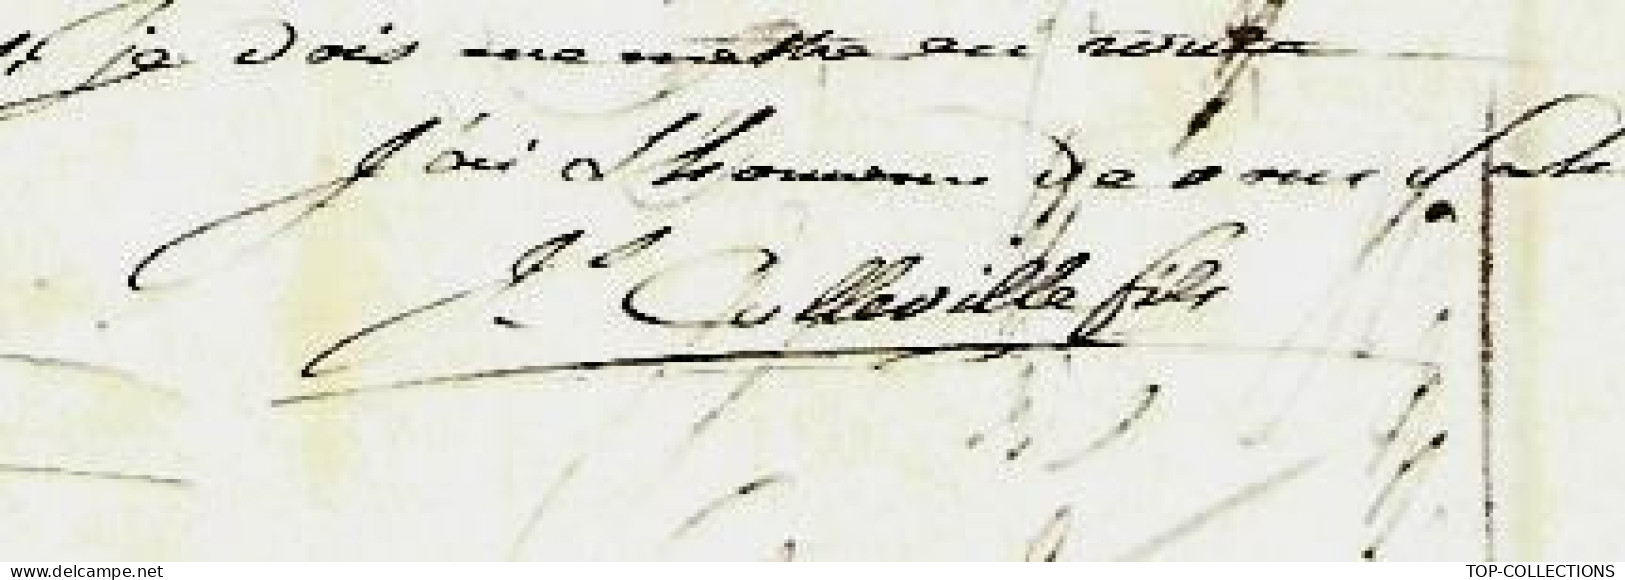 je dois me mettre en route
J'ai L'honneur de vous saluer
Jh Colleville fils
www.delcampe.net
TOP-COLLECTIONS